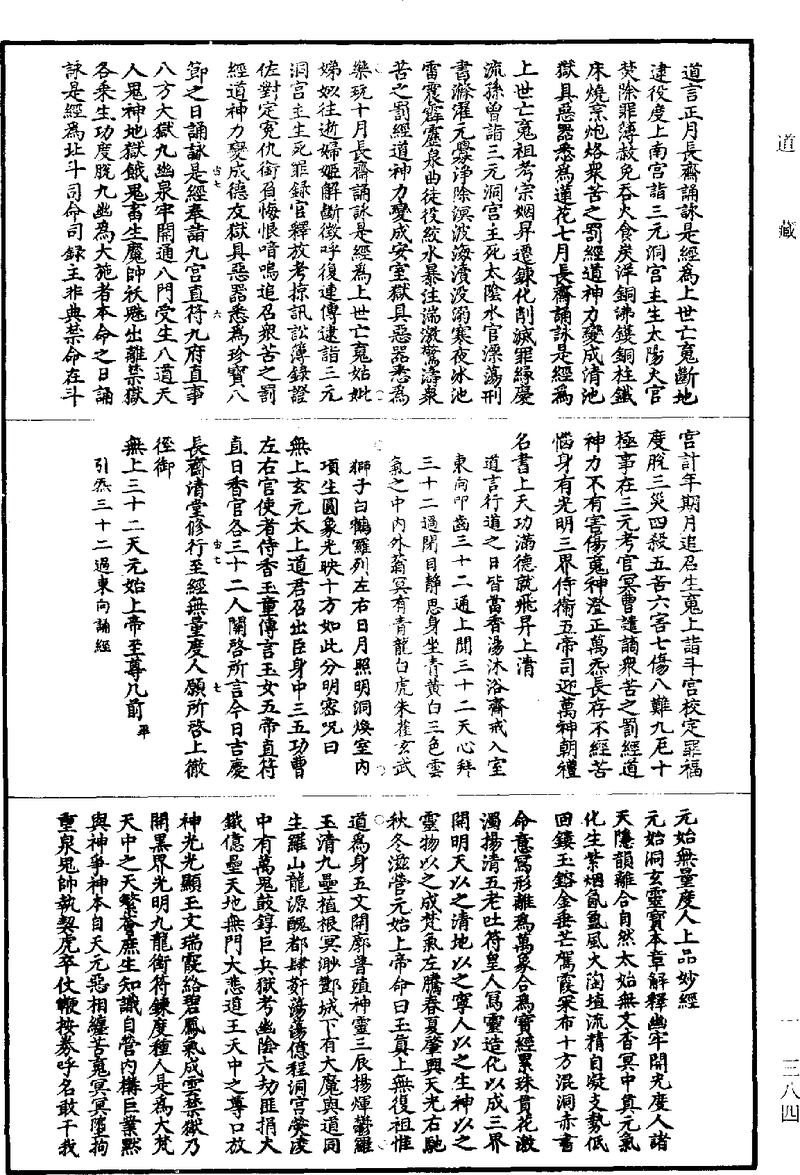 道藏
一—三八四
道言正月長齋誦詠是經爲上世亡䰟斷地
逮役度上南宮詣三元洞宮主生太陽火官
焚除罪簿赦免吞火食炭洋銅沸鑊銅柱鐵
床燒烹炮烙衆苦之罰經道神力變成清池
獄具惡器悉爲蓮花七月長齋誦詠是經爲
上世亡䰟祖考宗姻昇遷鍊化削滅罪緣慶
流孫曾詣三元洞宮主死太陰水官滌蕩刑
書滌濯元釁淨除溟波海瀆没溺寒夜冰池
雷震霹靂泉曲徒役絞水暴注湍激驚濤衆
苦之罰經道神力變成安室獄具惡器悉爲
樂玩十月長齋誦詠是經爲上世亡䰟姑妣
娣姒往逝婦姬解斷徵呼復連傳逮詣三元
洞宮主生死罪録官釋放考掠訊訟簿録證
佐對定寃仇銜負悔恨喑嗚追召衆苦之罰
古七 六
經道神力變成德友獄具惡器悉爲珍寶八
節之日誦詠是經奉詣九宮直符九府直事
八方大獄九幽泉牢開通八門受生八道天
人鬼神地獄餓鬼畜生魔帥妖魑出離禁獄
各乘生功度脫九幽爲大施者本命之日誦
詠是經爲北斗司命司録主非典禁命在斗
宮計年期月追召生䰟上詣斗宮校定罪福
度脫三災四殺五苦六害七傷八難九厄十
極事在三元考官冥曹譴謫衆苦之罰經道
神力不有害傷䰟神澄正萬炁長存不經苦
惱身有光明三界侍衛五帝司迎萬神朝禮
名書上天功滿德就飛昇上清
道言行道之日皆當香湯沐浴齋戒入室
東向叩齒三十二通上聞三十二天心拜
三十二過閉目靜思身坐青黄白三色雲
氣之中内外蓊冥有青龍白虎朱雀玄武
獅子白鶴羅列左右日月照明洞煥室内
項生圓象光映十方如此分明密呪曰
無上玄元太上道君召出臣身中三五功曹
左右官使者侍香玉童傳言玉女五帝直符
直日香官各三十二人關啓所言今日吉慶
古七 七
長齋清堂修行至經無量度人願所啓上徹
徑御
無上三十二天元始上帝至尊几前畢
引炁三十二過東向誦經
元始無量度人上品妙經
元始洞玄靈寶本章解釋幽牢開光度人諸
天隱韻離合自然太始無文杳冥中真元氣
化生紫烟氤氲風火陶埴流精自凝支勢低
回鏤玉鎔金垂芒駕霞采布十方混洞赤書
命意寫形離爲萬象合爲寶經累珠貫花激
濁揚清五老吐符皇人寫靈造化以成三界
開明天以之清地以之寧人以之生神以之
靈物以之成梵炁左騰春夏肇興天光右馳
秋冬滋營元始上帝命曰玉真上無復祖惟
道爲身五文開廓普殖神靈三辰揚煇鬱羅
玉清九壘植根冥渺酆城下有大魔與道同
生羅山龍源醜都肆姧蕩蕩億程洞宮陵
中有萬鬼鼓錞巨兵獄考幽陰六劫匪捐大
鐵億壘天地無門大悲道王天中之尊口放
神光光顯玉文瑞霞絡碧鳳氣成雲禁獄乃
開黑界光明九龍銜符鍊度種人是爲大梵
天中之天繁會庶生知識自營内構巨業黙
與神爭神本自天元惡相纏苦䰟冥冥墮拘
重泉鬼帥執契虎卒仗鞭按券呼名敢干我